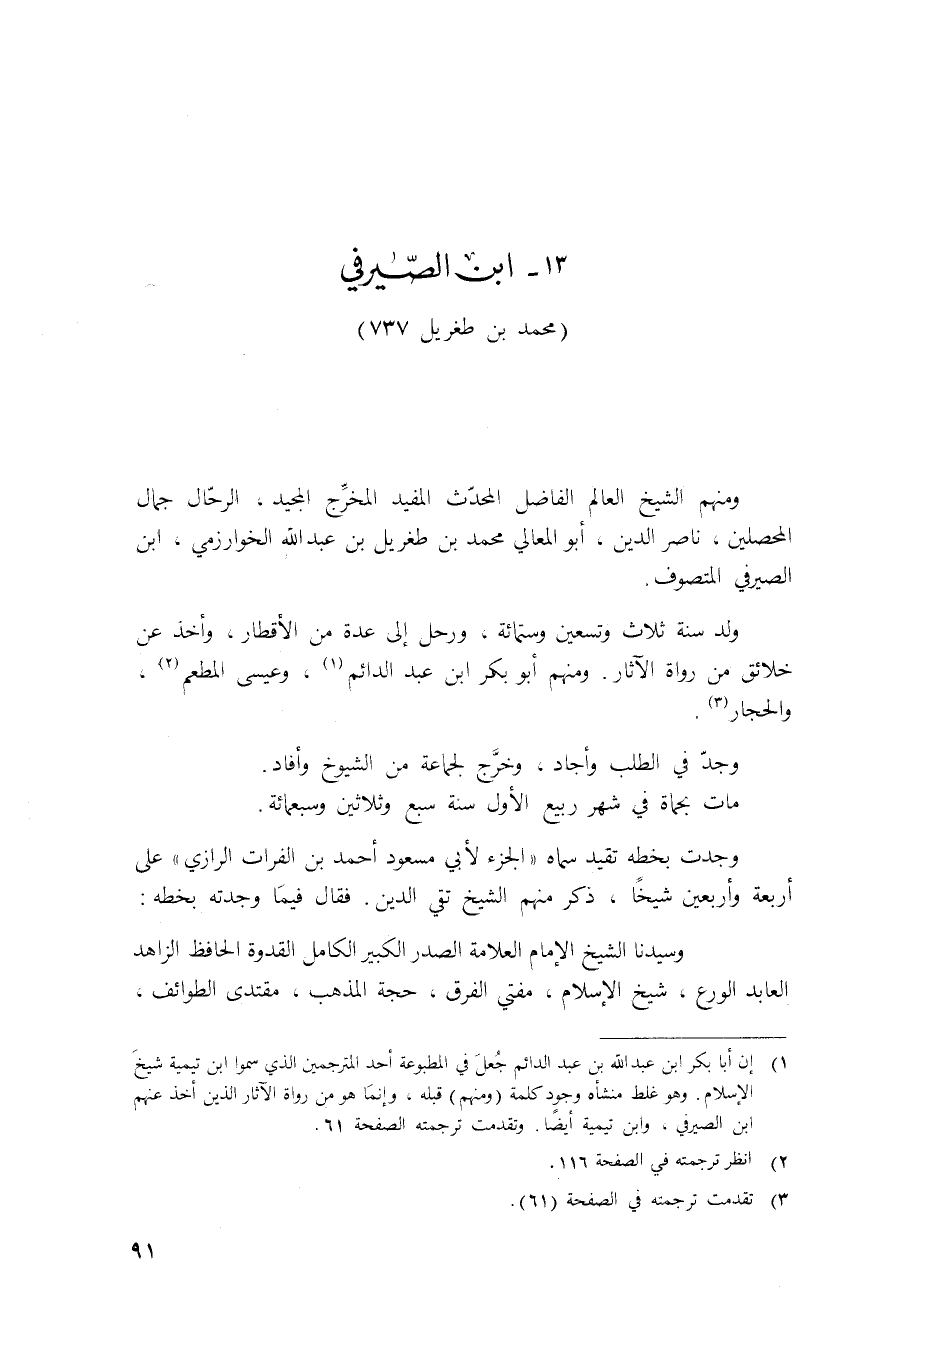 ١٣ - ابن الصّيرفي
(محمد بن طغريل ٧٣٧)
ومنهم الشيخ العالم الفاضل المحدّث المفيد المخرِّج المجيد ، الرحّال جمال
المحصلين ، ناصر الدين ، أبو المعالي محمد بن طغريل بن عبد الله الخوارزمي ، ابن
الصيرفي المتصوف .
ولد سنة ثلاث وتسعين وستمائة ، ورحل إلى عدة من الأقطار ، وأخذ عن
خلائق من رواة الآثار . ومنهم أبو بكر ابن عبد الدائم (١) ، وعيسى المطعم (٢) ،
والحجار (٣) .
وجدّ في الطلب وأجاد ، وخرَّج لجماعة من الشيوخ وأفاد .
مات بحماة في شهر ربيع الأول سنة سبع وثلاثين وسبعمائة .
وجدت بخطه تقيد سماه «الجزء لأبي مسعود أحمد بن الفرات الرازي» على
أربعة وأربعين شيخًا ، ذكر منهم الشيخ تقي الدين . فقال فيما وجدته بخطه :
وسيدنا الشيخ الإمام العلامة الصدر الكبير الكامل القدوة الحافظ الزاهد
العابد الورع ، شيخ الإسلام ، مفتي الفرق ، حجة المذهب ، مقتدى الطوائف ،
١) إن أبا بكر ابن عبد الله بن عبد الدائم جُعلَ في المطبوعة أحد المترجمين الذي سموا ابن تيمية شيخَ
الإسلام . وهو غلط منشأه وجود كلمة (ومنهم) قبله ، وإنما هو من رواة الآثار الذين أخذ عنهم
ابن الصيرفي ، وابن تيمية أيضًا . وتقدمت ترجمته الصفحة ٦١ .
٢) انظر ترجمته في الصفحة ١١٦ .
٣) تقدمت ترجمته في الصفحة (٦١) .
٩١